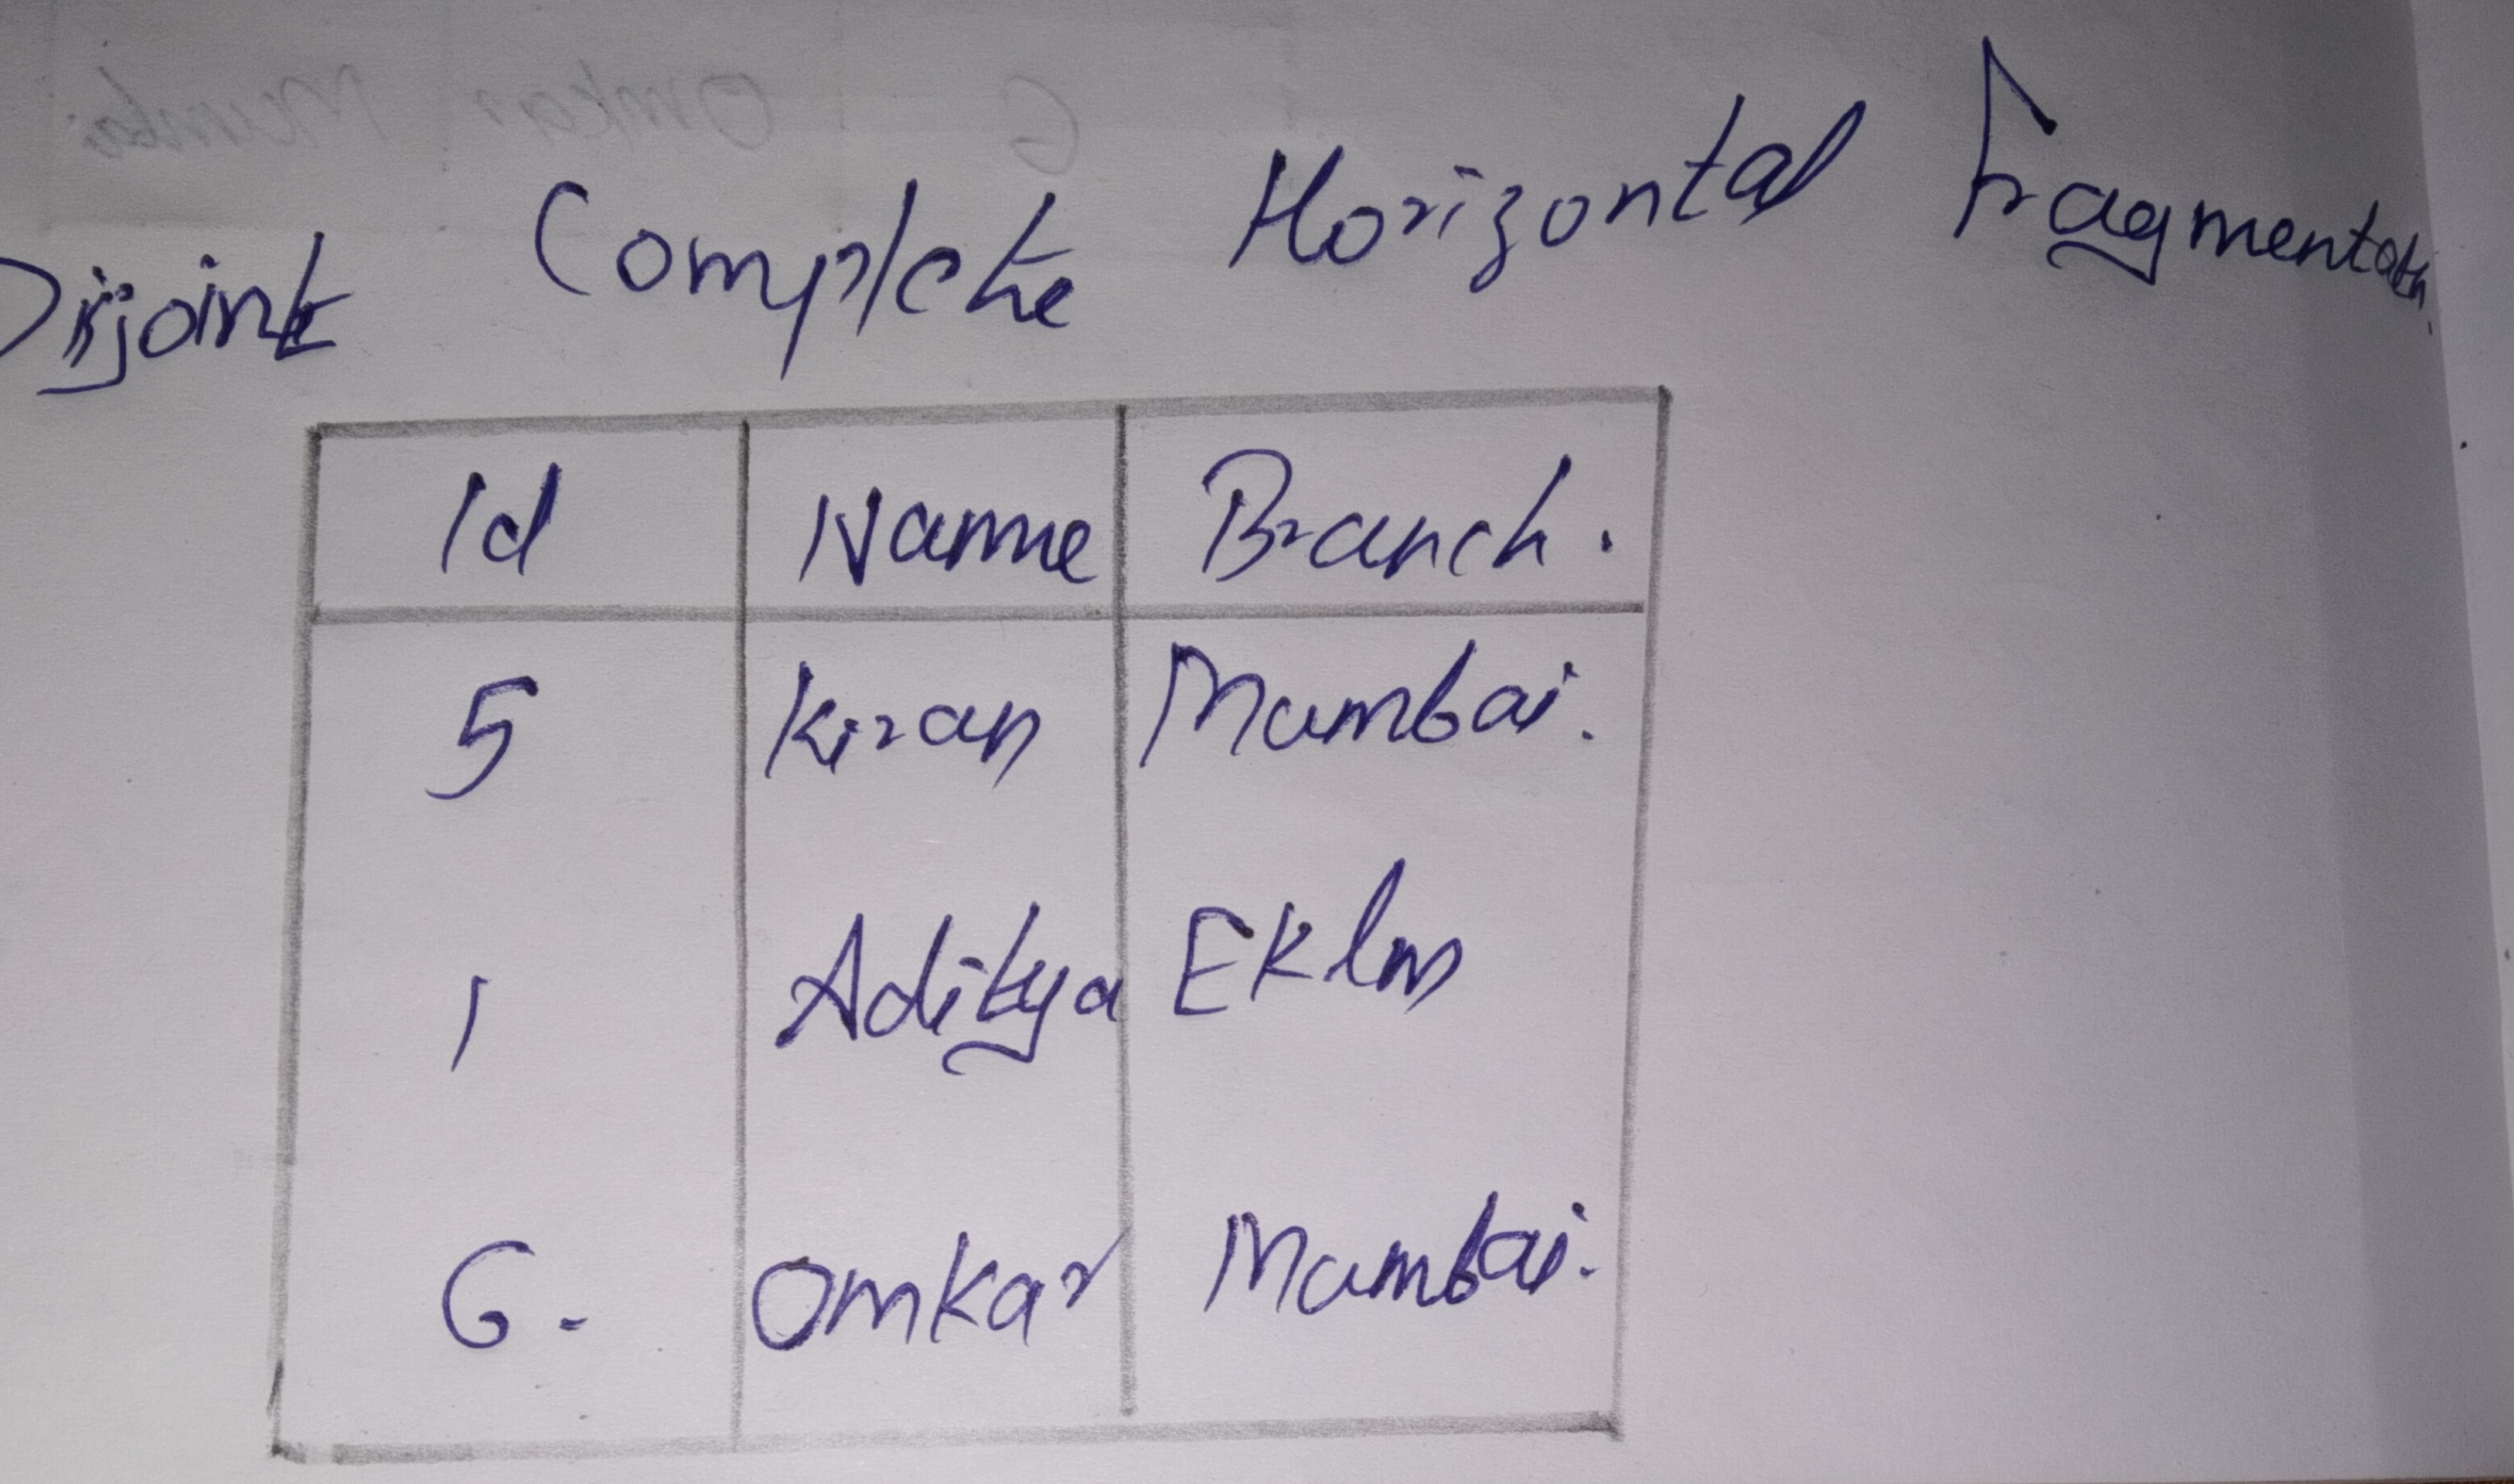 Disjoint Complete Horizontal Fragmentatn.
Id Name Branch.
5 Kiran Mumbai.
1 Aditya Eklm
6. Omkar Mumbai.